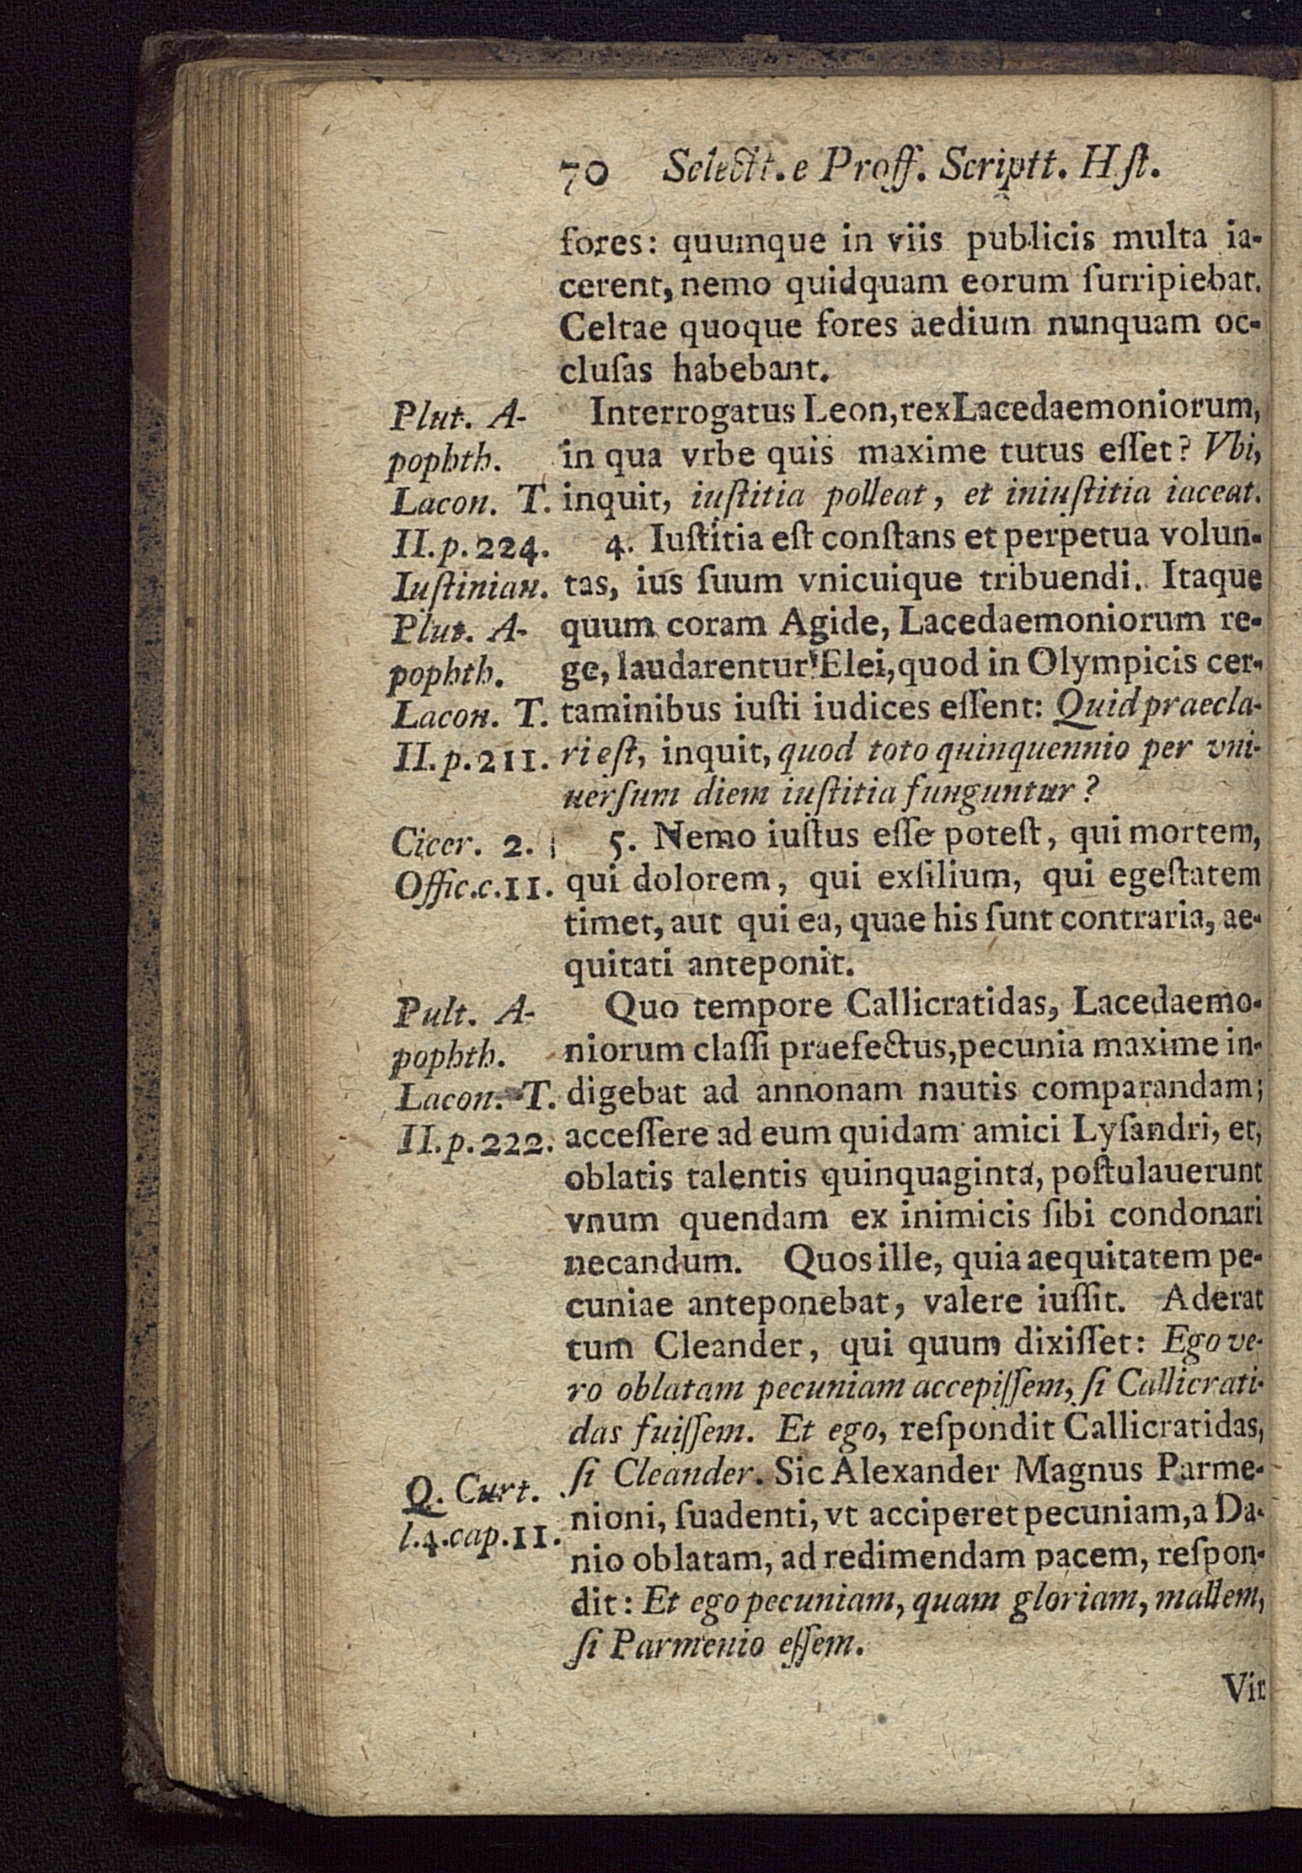 70 Selectt. e Proff. Scriptt. Hſt.
fores: quumque in viis publicis multa ia-
cerent, nemo quidquam eorum ſurripiebat.
Celtae quoque fores aedium nunquam oc-
cluſas habebant.
Plut. A-
pophth.
Lacon. T.
II. p. 224.
Interrogatus Leon, rex Lacedaemoniorum,
in qua vrbe quis maxime tutus eſſet? Vbi,
inquit, iuſtitia polleat, et iniuſtitia iaceat.
Iuſtinian.
4. Iuſtitia eſt conſtans et perpetua volun-
tas, ius ſuum vnicuique tribuendi. Itaque
Plut. A-
pophth.
Lacon. T.
II. p. 211.
quum coram Agide, Lacedaemoniorum re-
ge, laudarentur Elei, quod in Olympicis cer-
taminibus iuſti iudices eſſent: Quid praecla-
ri eſt, inquit, quod toto quinquennio per vni-
uerſum diem iuſtitia funguntur?
Cicer. 2.
Offic. c. 11.
5. Nemo iuſtus eſſe poteſt, qui mortem,
qui dolorem, qui exſilium, qui egeſtatem
timet, aut qui ea, quae his ſunt contraria, ae-
quitati anteponit.
Pult. A-
pophth.
Lacon. T.
II. p. 222.
Quo tempore Callicratidas, Lacedaemo-
niorum claſſi praefectus, pecunia maxime in-
digebat ad annonam nautis comparandam;
acceſſere ad eum quidam amici Lyſandri, et,
oblatis talentis quinquaginta, poſtulauerunt
vnum quendam ex inimicis ſibi condonari
necandum. Quos ille, quia aequitatem pe-
cuniae anteponebat, valere iuſſit. Aderat
tum Cleander, qui quum dixiſſet: Ego ve-
ro oblatam pecuniam accepiſſem, ſi Callicrati-
das fuiſſem. Et ego, reſpondit Callicratidas,
Q. Curt.
l. 4. cap. 11.
ſi Cleander. Sic Alexander Magnus Parme-
nioni, ſuadenti, vt acciperet pecuniam, a Da-
nio oblatam, ad redimendam pacem, reſpon-
dit: Et ego pecuniam, quam gloriam, mallem,
ſi Parmenio eſſem.
Vir